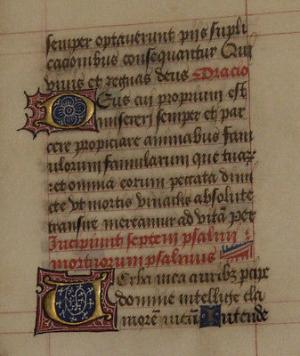 semper optauerunt piis supli
cacionibus consequantur Qui
viuis et regnas deus Oracio
Deus cui proprium est
misereri semper et par
cere propiciare animabus fam
ulorum famularum que tuarum
et omnia eorum peccata dimi
cte vt mortis vinculis absolute
transire mereantur ad vitam per
Incipiunt septem psalmi
mortuorum psalmus
Verba mea auribus percipe
domine intellige cla
morem meum Intende